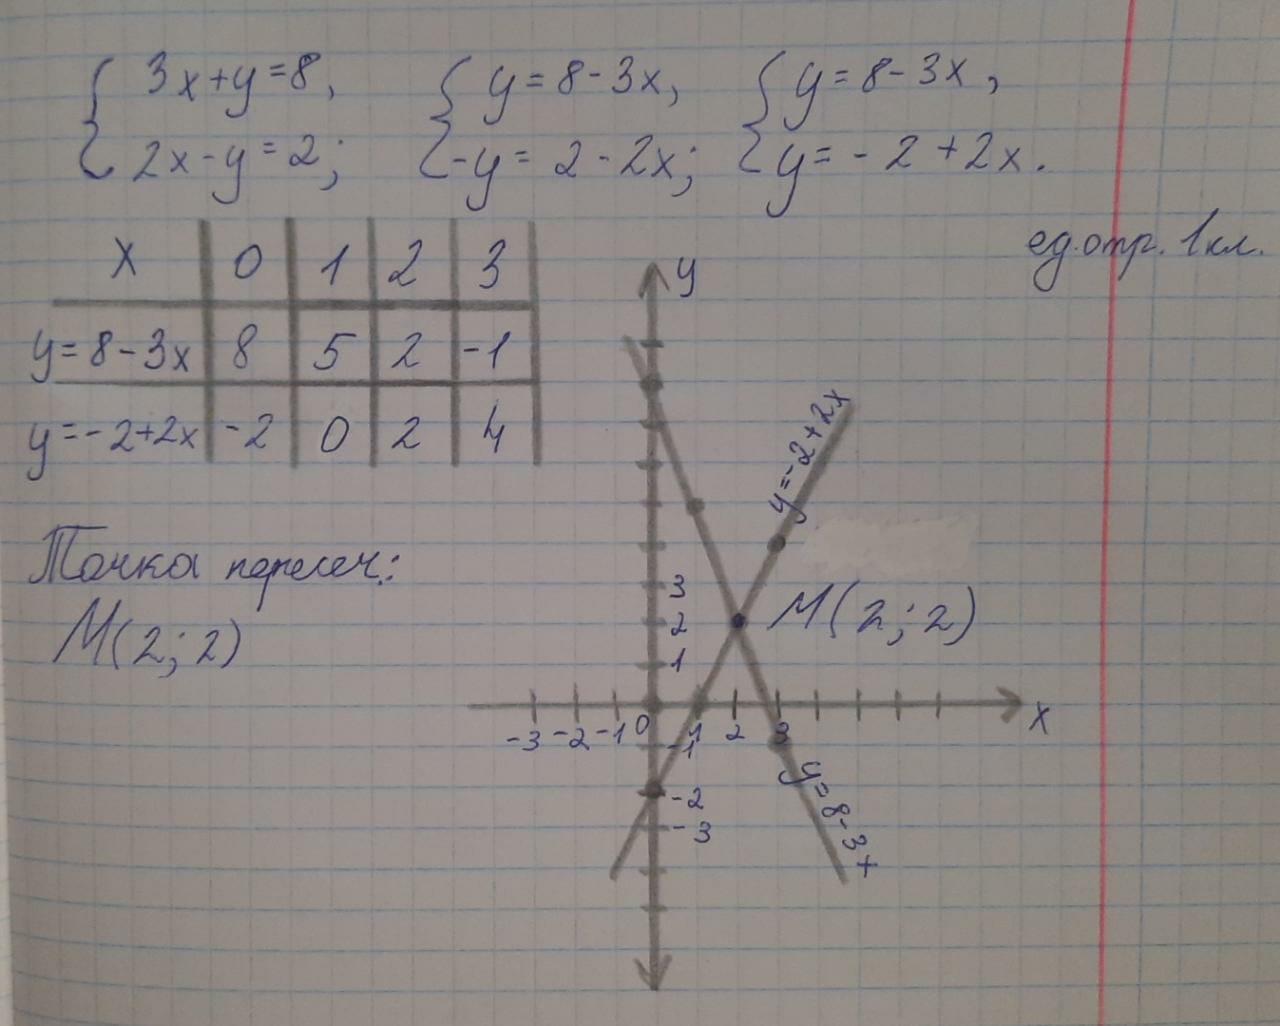 { 3x+y=8, { y=8-3x, { y=8-3x,
2x-y=2; -y=2-2x; y=-2+2x.
ед.отр. 1кл.
x 0 1 2 3
y=8-3x 8 5 2 -1
y=-2+2x -2 0 2 4
Точка пересеч.:
M(2;2)
y
y=-2+2x
3
2 M(2;2)
1
-3 -2 -1 0 1 2 3 x
-1
-2
-3
y=8-3x